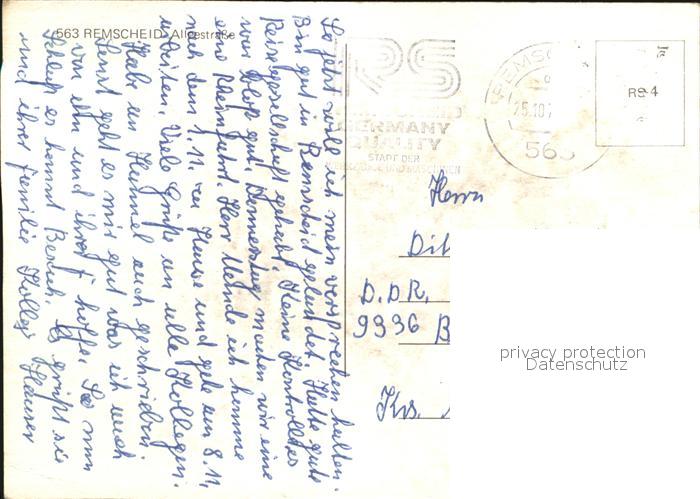 563 REMSCHEID, Alleestraße
So jetzt will ich mein versprechen halten.
Bin gut in Remscheid gelandet. Hatte gute
Reisegesellschaft gehabt. Keine Kontrolle
war gut. Donnerstag machen wir eine
eine Rheinfahrt. Herr Mende ich komme
nach dem 7.11. zu Hause und gehe am 8.11.
arbeiten. Viele Grüße an alle Kollegen.
Habe an Hummel auch geschrieben.
Sonst geht es mir gut was ich auch
von ihn und ihrer F. hoffe. So nun
Schluß es kommt Besuch. Es grüßt sie
und ihrer Familie Kolleg Hauser
RS
GERMANY
QUALITY
STADT DER
WERKZEUGE UND MASCHINEN
REMSC
25.10.
563
RS 4
Herrn
Dit
D.D.R.
9336 B
Krs.
privacy protection
Datenschutz